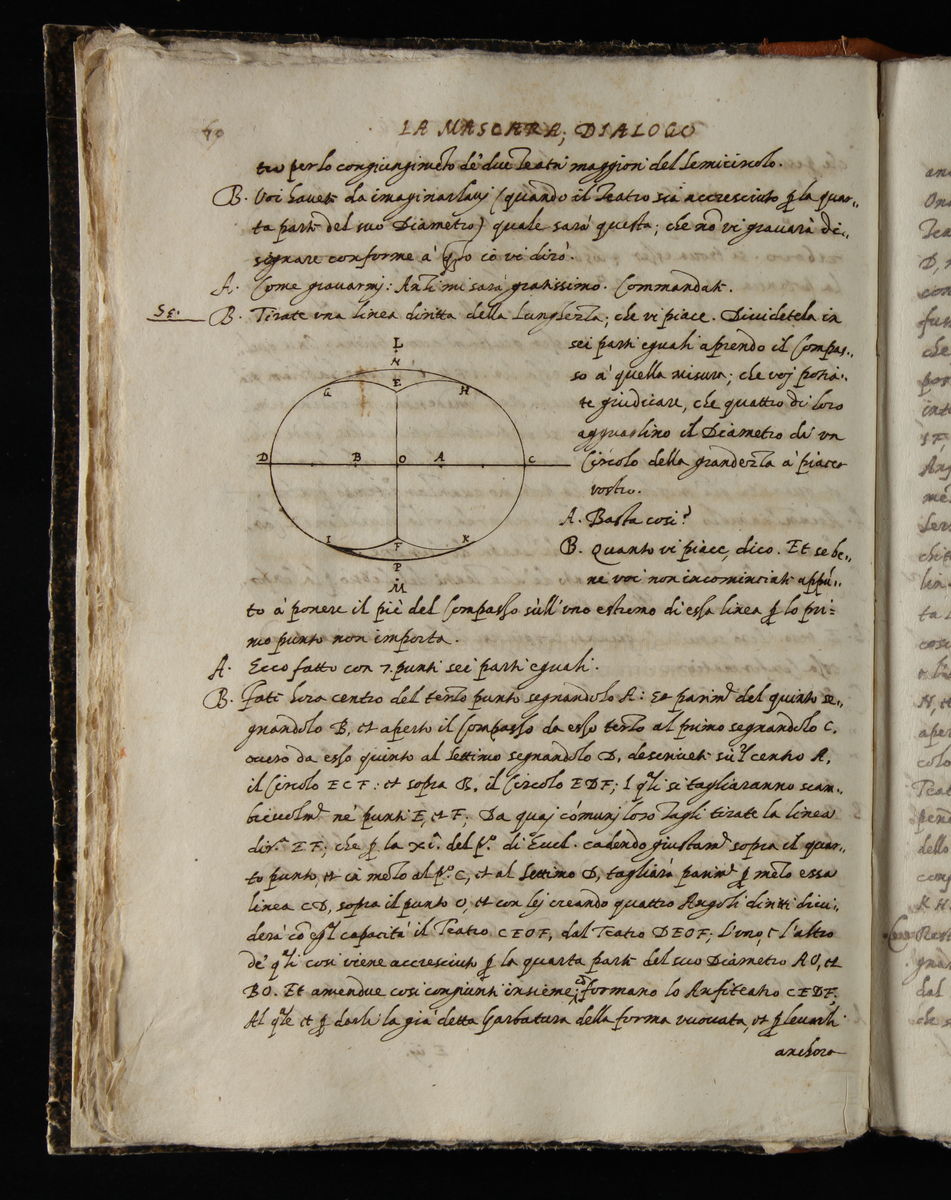 60
LA MASCARA, DIALOGO
tro per lo congiungimeto de' due Teatri maggiori del Semicircolo.
B. Voi havete da imaginarlavi (quando il Teatro sia accresciuto p la quar-
ta parte del suo Diametro) quale sarà questa; che nō vi gravarà di-
segnare conforme à ciò vi dirò.
A. Come gravarmi: Anzi mi sarà gratissimo. Commandate.
B. Tirate una linea diritta della lunghezza, che vi piace. Dividetela in
sei parti eguali aprendo il Compas-
so à quella misura; che voi potia-
te giudicare, che quattro di loro
agguaglino il Diametro da un
Circolo della grandezza à piacer
vostro.
A. Basta cosi?
B. Quanto vi piace, dico. Et se be-
ne voi non incominciate appū-
to à ponere il piè del Compasso sùll'uno estremo di essa linea p lo pri-
mo punto non importa.
L
N
E
G H
D B O A C
I F K
P
M
A. Ecco fatto con 7. punti sei parti eguali.
B. Fate hora centro del terzo punto segnandolo A: Et parimᵗᵉ del quinto se-
gnandolo B, et aperto il Compasso da esso terzo al primo segnandolo C,
overo da esso quinto al settimo segnandolo D, descrivete sù'l centro A,
il Circolo ECF: et sopra B, il Circolo EDF; I qˡⁱ si tagliaranno scam-
bievolmᵗᵉ ne' punti E, et F; Da quai cómuni loro tagli tirate la linea
dirᵃ EF; che p la xi. del pº. di Eucl. cadendo giustamᵗᵉ sopra il quar-
to punto, et in mezo al pº. C, et al settimo D, tagliarà parimᵗᵉ p mezo essa
linea CD, sopra il punto O, et con lei creando quattro Angoli diritti divi-
derà cō egˡ capacità il Teatro CEOF, dal Teatro DEOF; l'uno, et l'altro
de' qˡⁱ cosi viene accresciuto p la quarta parte del suo Diametro AO, et
BO. Et amendue cosi congiunti insieme formano lo Anfiteatro CEDF,
Al qˡᵉ et p darli la già detta garbatura della forma vuovata, et p levarli
anchora